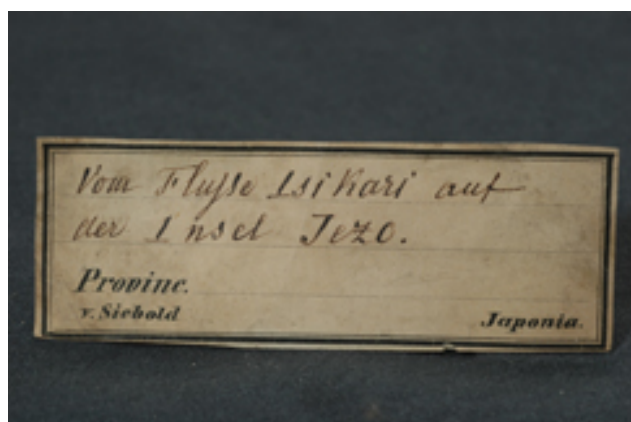 Vom Flusse Isikari auf
der Insel Jezo.
Provinc.
v. Siebold Japonia.